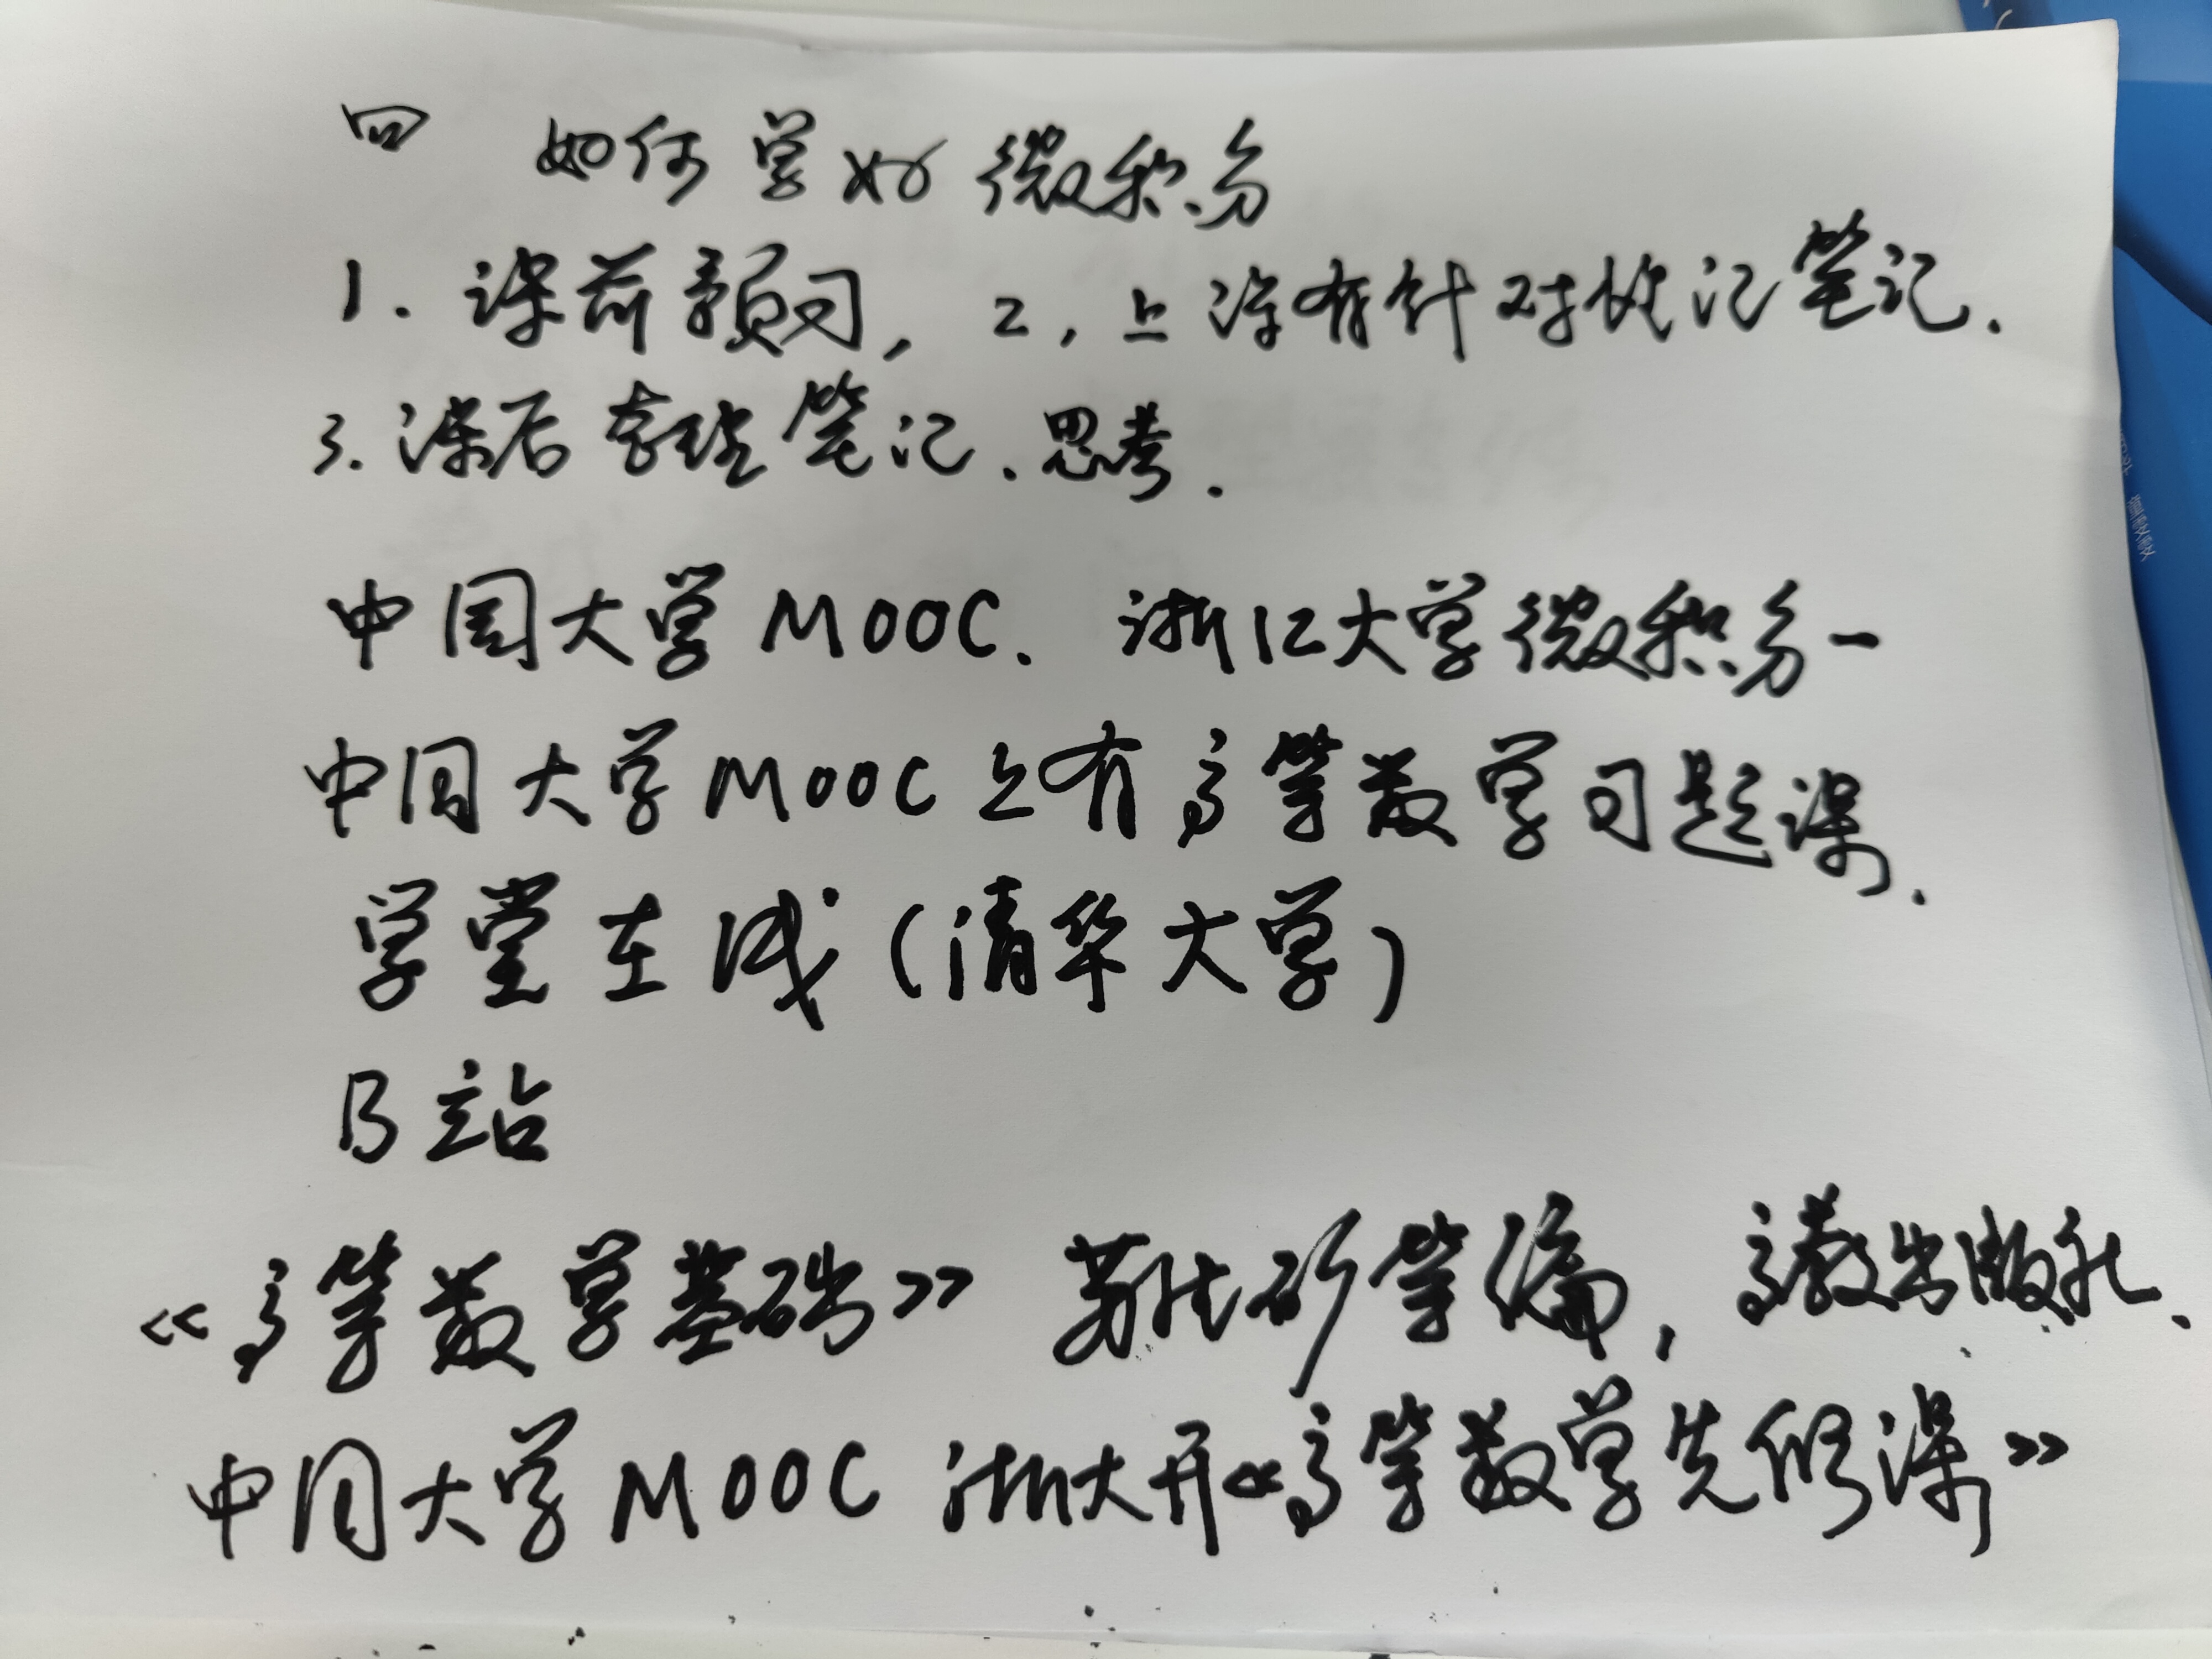 四 如何学好微积分
1. 课前预习, 2, 上课有针对性记笔记.
3. 课后整理笔记.思考.
中国大学MOOC. 浙江大学微积分一
中国大学MOOC上有高等数学习题课.
学堂在线(清华大学)
B站
《高等数学基础》 等编, 高教出版社.
中国大学MOOC 浙大开《高等数学先修课》